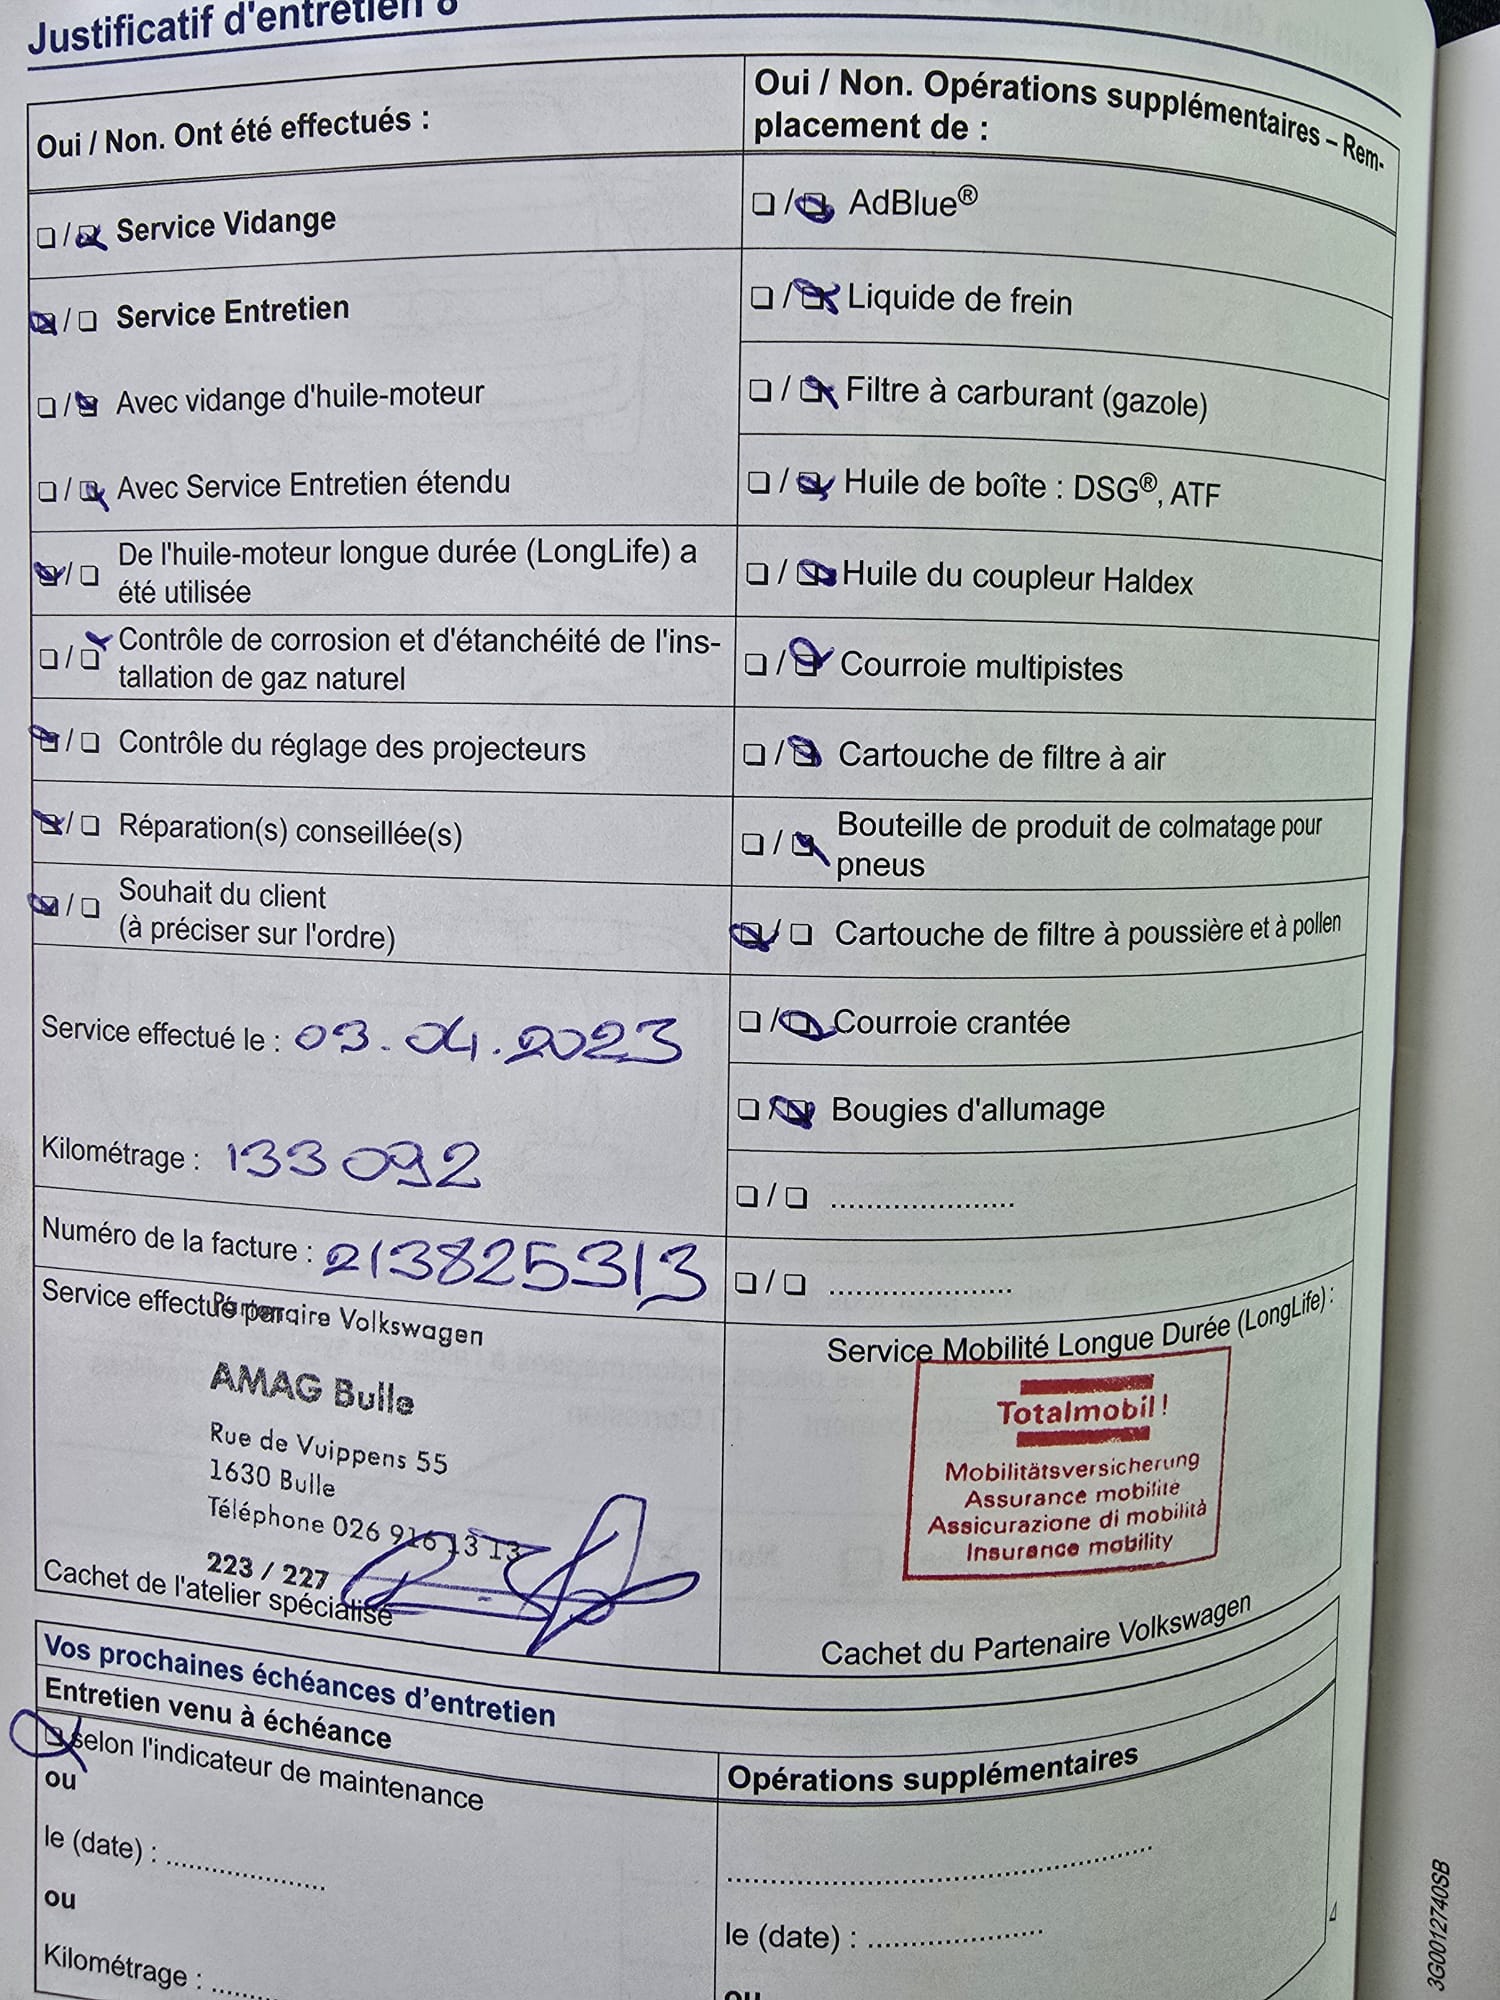 Justificatif d'entretien 8
Oui / Non. Ont été effectués :
❏ / ☒ Service Vidange
☒ / ❏ Service Entretien
❏ / ☒ Avec vidange d'huile-moteur
❏ / ☒ Avec Service Entretien étendu
☒ / ❏ De l'huile-moteur longue durée (LongLife) a
été utilisée
❏ / ☒ Contrôle de corrosion et d'étanchéité de l'ins-
tallation de gaz naturel
☒ / ❏ Contrôle du réglage des projecteurs
☒ / ❏ Réparation(s) conseillée(s)
☒ / ❏ Souhait du client
(à préciser sur l'ordre)
Service effectué le : 03.04.2023
Kilométrage : 133 092
Numéro de la facture : 213825313
Service effectué par
Partenaire Volkswagen
AMAG Bulle
Rue de Vuippens 55
1630 Bulle
Téléphone 026 916 13 13
223 / 227
Cachet de l'atelier spécialisé
Oui / Non. Opérations supplémentaires – Rem-
placement de :
❏ / ☒ AdBlue®
❏ / ☒ Liquide de frein
❏ / ☒ Filtre à carburant (gazole)
❏ / ☒ Huile de boîte : DSG®, ATF
❏ / ☒ Huile du coupleur Haldex
❏ / ☒ Courroie multipistes
❏ / ☒ Cartouche de filtre à air
❏ / ☒ Bouteille de produit de colmatage pour
pneus
☒ / ❏ Cartouche de filtre à poussière et à pollen
❏ / ☒ Courroie crantée
❏ / ☒ Bougies d'allumage
❏ / ❏ .....................
❏ / ❏ .....................
Service Mobilité Longue Durée (LongLife) :
Totalmobil!
Mobilitätsversicherung
Assurance mobilité
Assicurazione di mobilità
Insurance mobility
Cachet du Partenaire Volkswagen
Vos prochaines échéances d'entretien
Entretien venu à échéance
☒ selon l'indicateur de maintenance
ou
le (date) : ....................
ou
Kilométrage : ........
Opérations supplémentaires
.....................................................
le (date) : ......................
ou
3G0012740SB